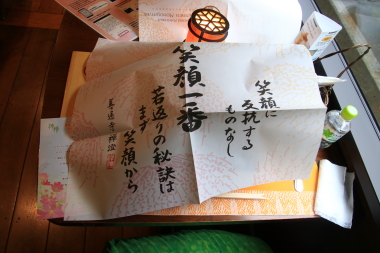 笑顔に
反抗する
ものなし
笑顔一番
若返りの秘訣は
まず
笑顔から